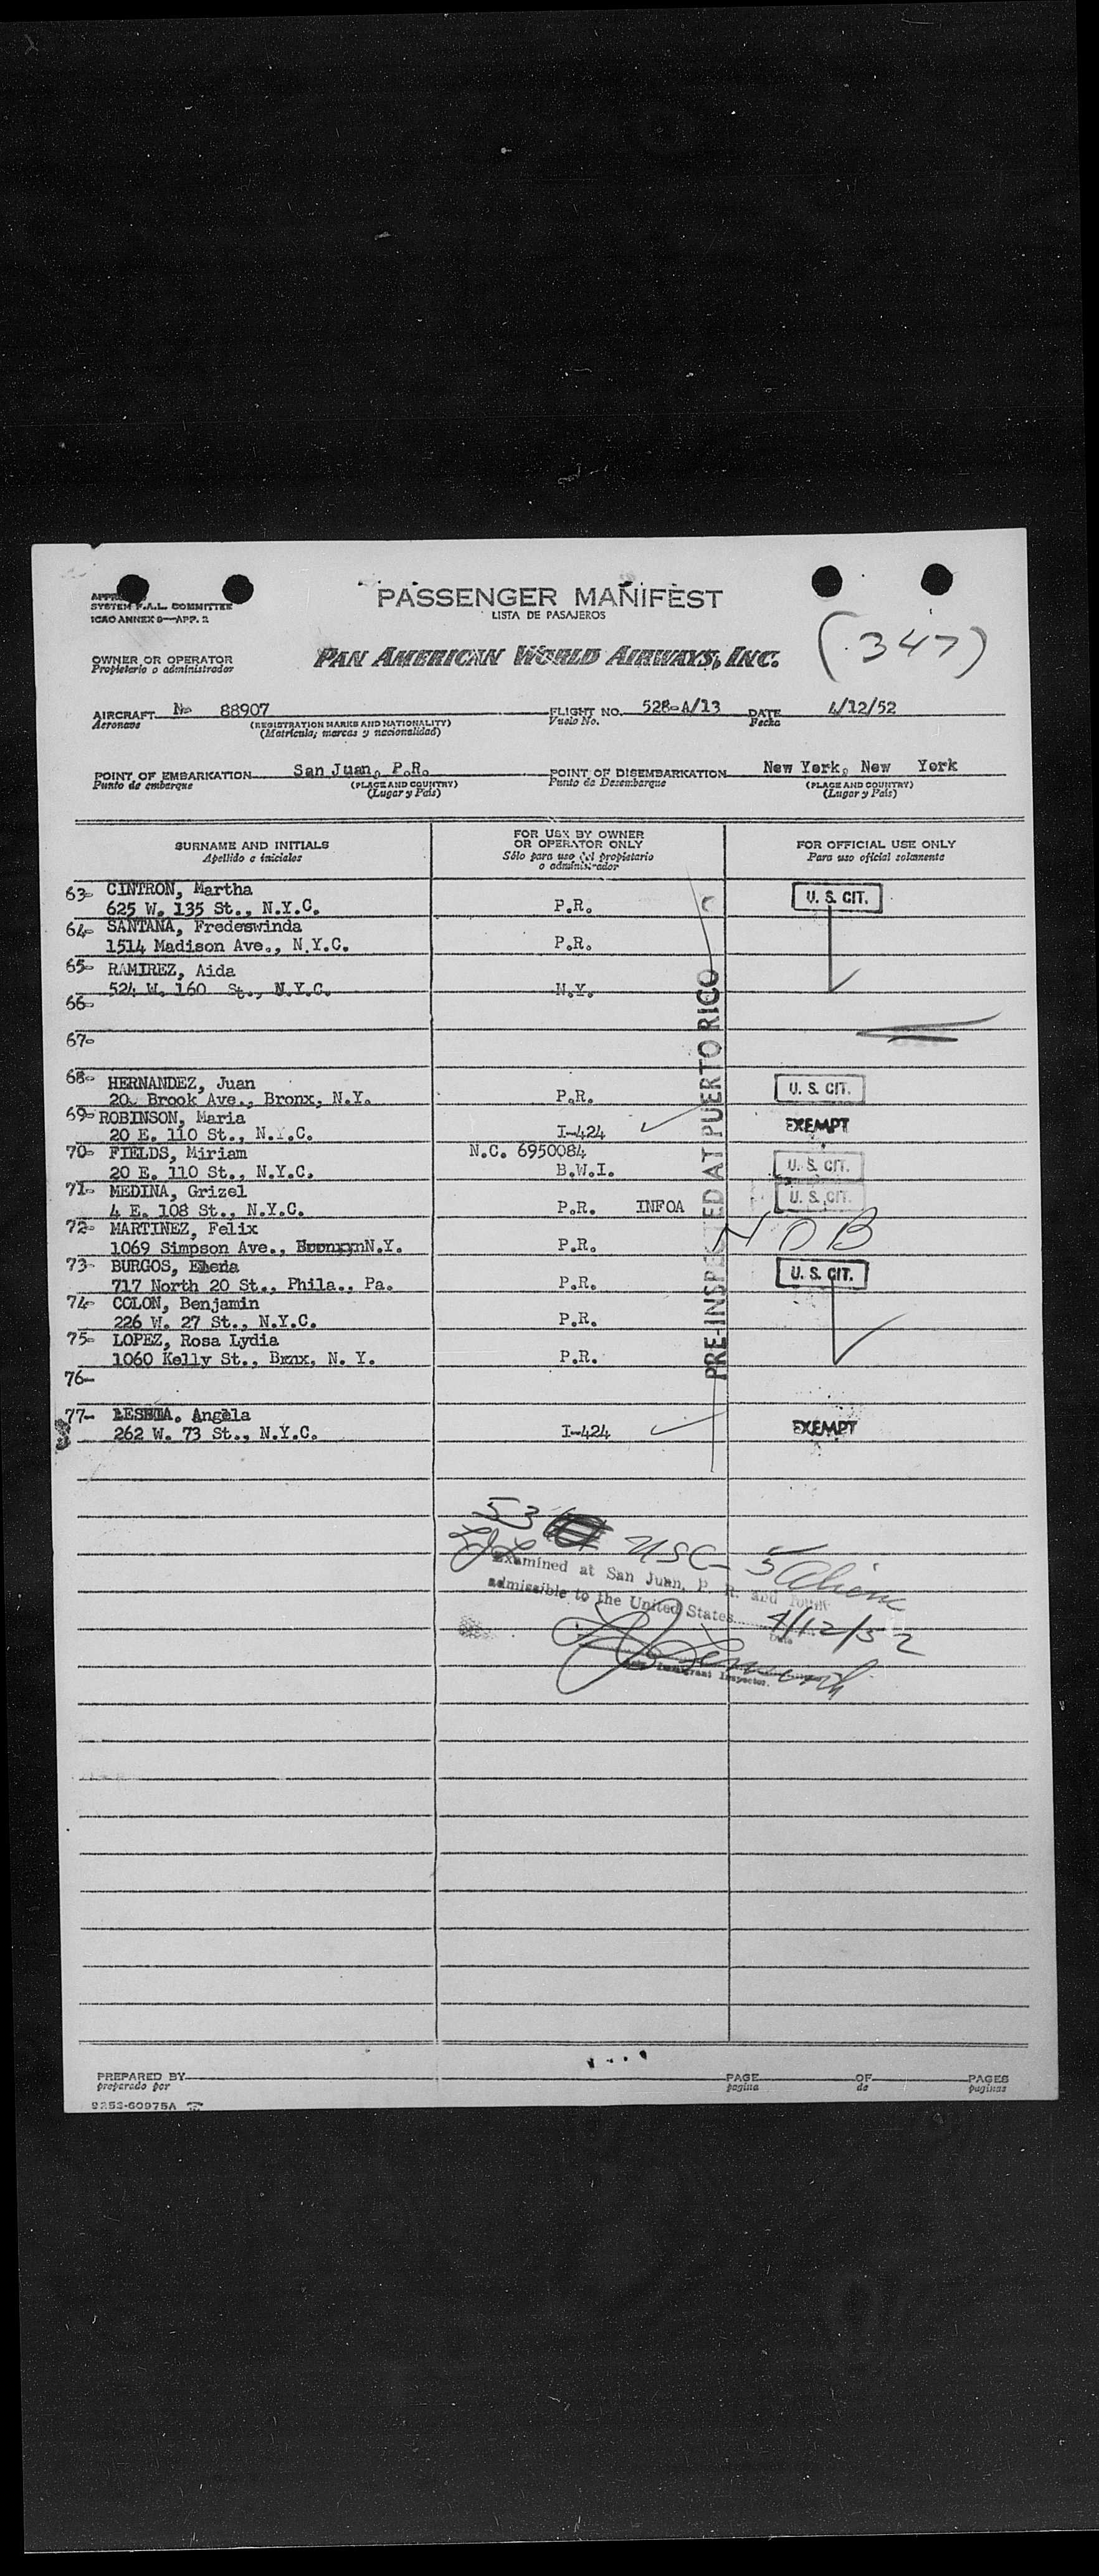 SYSTEM F.A.L. COMMITTEE
ICAO ANNEX 9—APP. 2
PASSENGER MANIFEST
LISTA DE PASAJEROS
(347)
OWNER OR OPERATOR
Propietario o administrador
PAN AMERICAN WORLD AIRWAYS, INC.
AIRCRAFT N- 88907 FLIGHT NO. 528-A/13 DATE 4/12/52
Aeronave (REGISTRATION MARKS AND NATIONALITY) Vuelo No. Fecha
(Matrícula; marcas y nacionalidad)
POINT OF EMBARKATION San Juan, P.R. POINT OF DISEMBARKATION New York, New York
Punto de embarque (PLACE AND COUNTRY) Punto de Desembarque (PLACE AND COUNTRY)
(Lugar y País) (Lugar y País)
SURNAME AND INITIALS FOR USE BY OWNER OR OPERATOR ONLY FOR OFFICIAL USE ONLY
Apellido e iniciales Sólo para uso del propietario o administrador Para uso oficial solamente
63- CINTRON, Martha U. S. CIT.
625 W. 135 St., N.Y.C. P.R.
64- SANTANA, Fredeswinda
1514 Madison Ave., N.Y.C. P.R.
65- RAMIREZ, Aida
524 W. 160 St., N.Y.C. N.Y.
66-
67-
68- HERNANDEZ, Juan U. S. CIT.
20 Brook Ave., Bronx, N.Y. P.R.
69- ROBINSON, Maria EXEMPT
20 E. 110 St., N.Y.C. I-424
70- FIELDS, Miriam N.C. 6950084
20 E. 110 St., N.Y.C. B.W.I. U. S. CIT.
71- MEDINA, Grizel U. S. CIT.
4 E. 108 St., N.Y.C. P.R. INFOA
72- MARTINEZ, Felix N O B
1069 Simpson Ave., N.Y. P.R.
73- BURGOS, U. S. CIT.
717 North 20 St., Phila., Pa. P.R.
74- COLON, Benjamin
226 W. 27 St., N.Y.C. P.R.
75- LOPEZ, Rosa Lydia
1060 Kelly St., Brnx, N. Y. P.R.
76-
77- Angela EXEMPT
262 W. 73 St., N.Y.C. I-424
PRE-INSPECTED AT PUERTO RICO
53 USC- 5 Aliens
Examined at San Juan, P. R. and found
admissible to the United States 4/12/52
Date
Immigrant Inspector.
PREPARED BY PAGE OF PAGES
preparado por pagina de paginas
9253-60975A